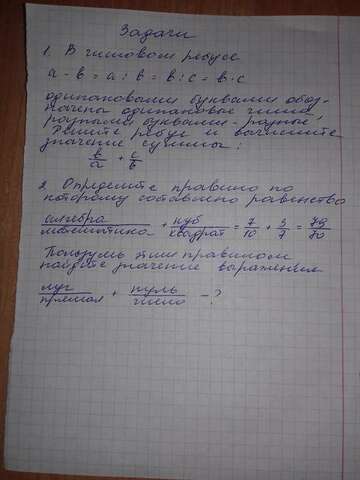 Задачи
1. В числовом ребусе
а - в = а : в = в : с = в · с
одинаковыми буквами обоз-
начены одинаковые числа,
разными буквами - разные!
Решите ребус и вычислите
значение суммы:
в/а + с/в
2. Определите правило по
которому составлено равенство
алгебра/математика + куб/квадрат = 7/10 + 3/7 = 79/70
Пользуясь этим правилом
найдите значение выражения
луг/прямая + нуль/число - ?